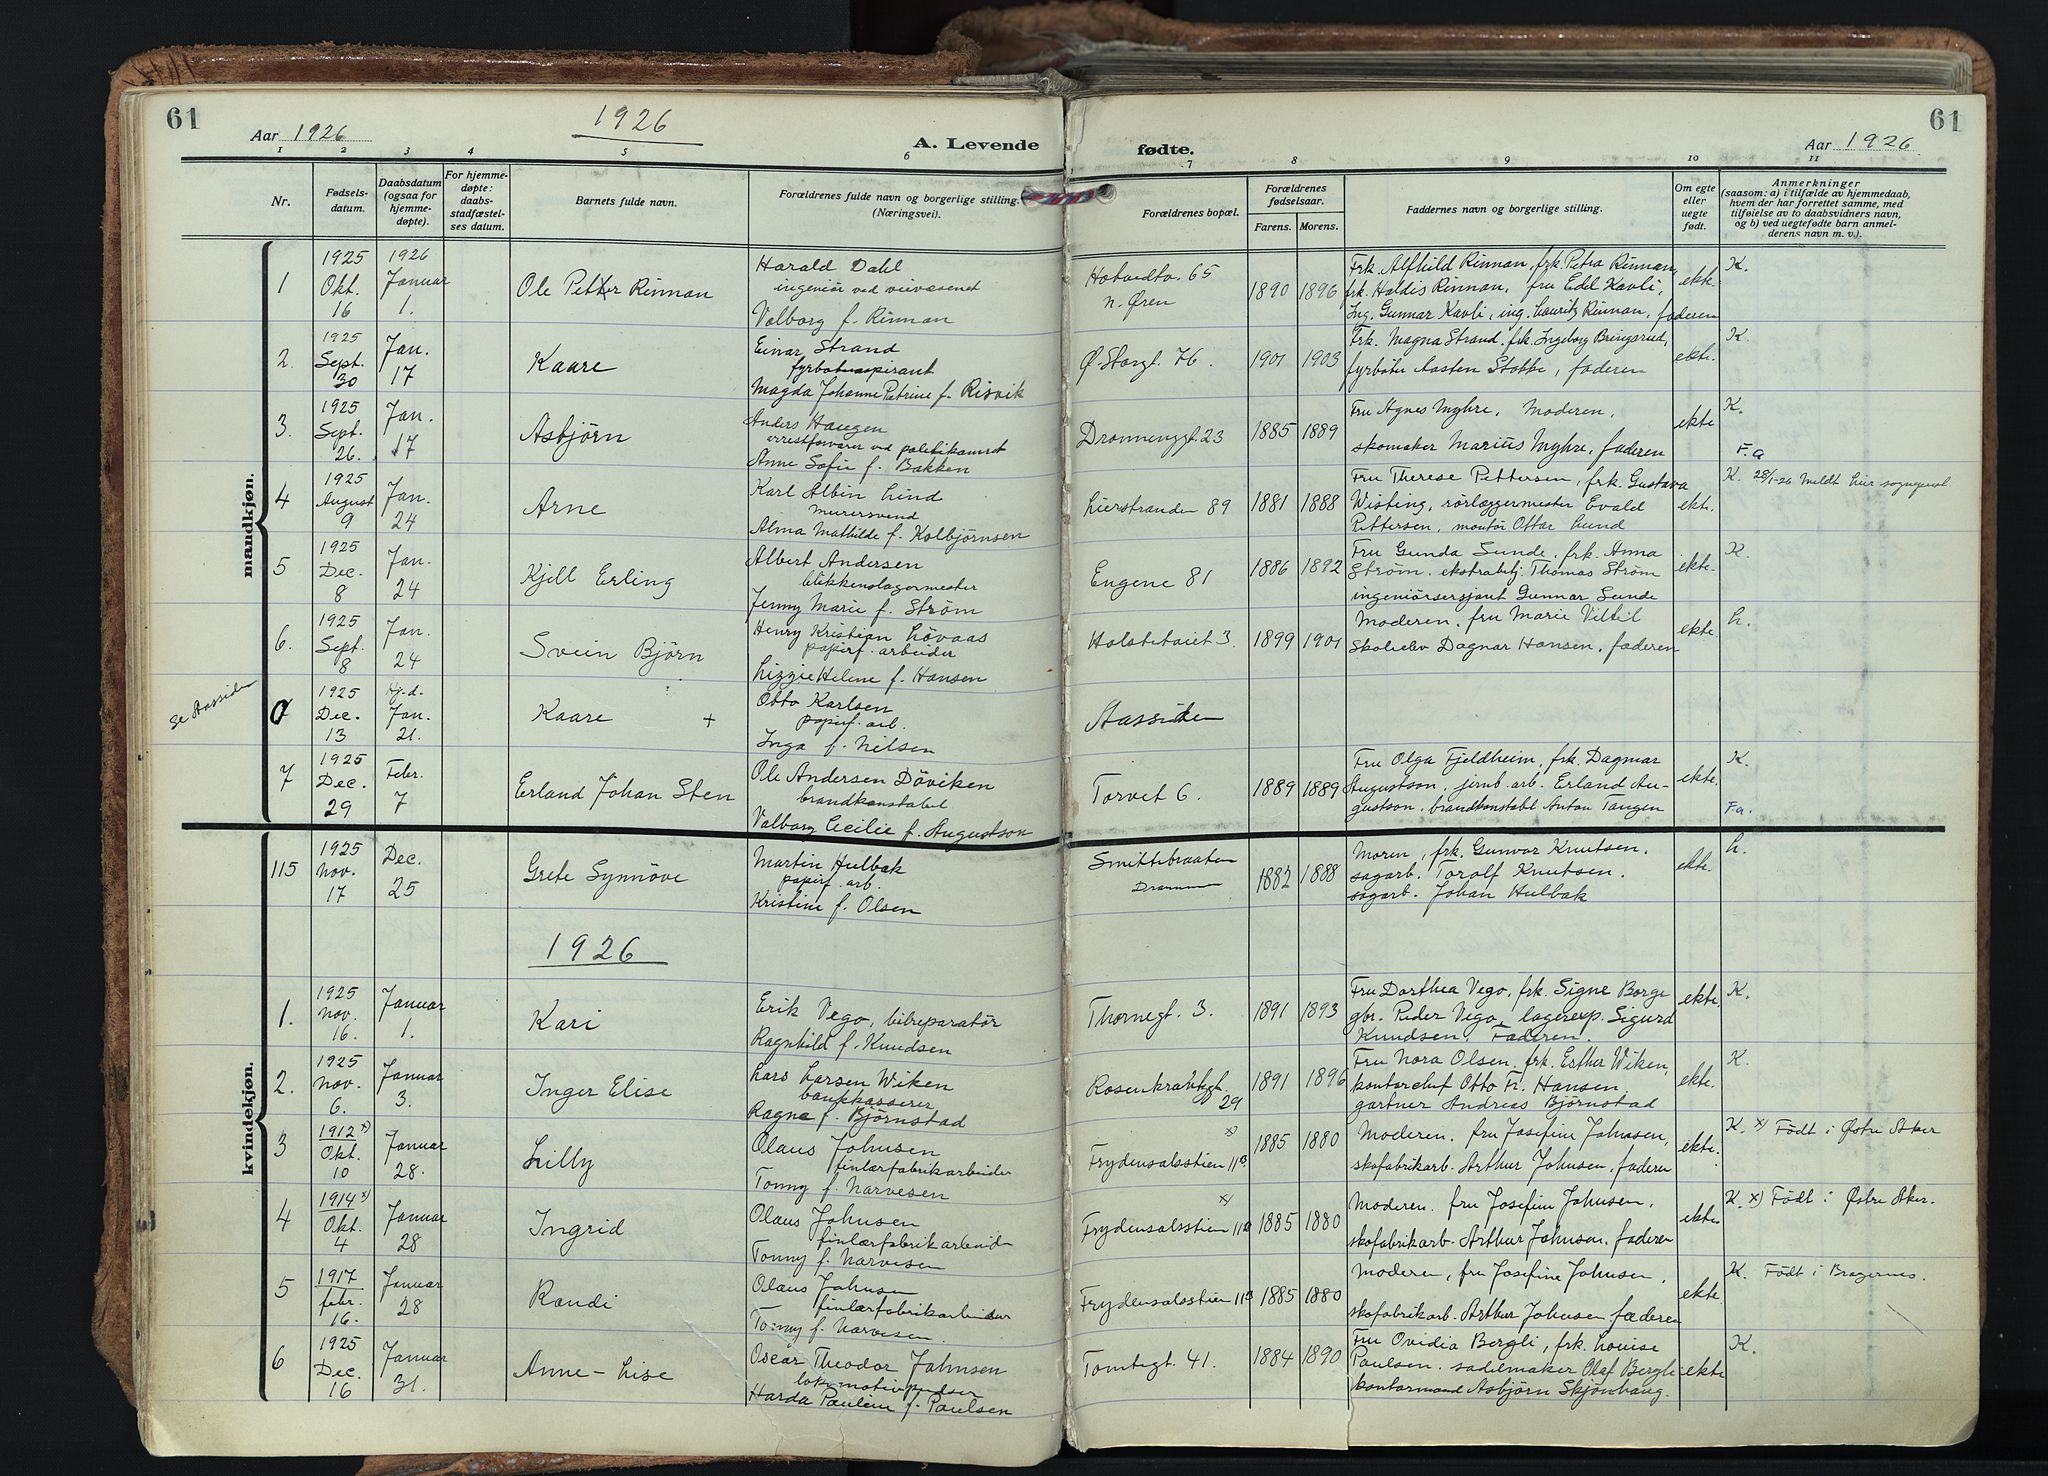 61
Aar 1926
1926
A. Levende
1 2 3 4 5 6
Nr.
Fødsels-
datum.
Daabsdatum
(ogsaa for
hjemme-
døpte).
For hjemme-
døpte:
daabs-
stadfæstel-
ses datum.
Barnets fulde navn.
Forældrenes fulde navn og borgerlige stilling.
(Næringsvei).
mandkjøn.
1
1925
Okt.
16
1926
Januar
1.
Ole Petter Rinnan
Harald Dahl
ingeniør ved veivæsenet
Valborg f. Rinnan
2.
1925
Sept.
30
Jan.
17
Kaare
Einar Strand
fyrbøteraspirant
Magda Johanne Petrine f. Risvik
3.
1925
Sept.
26.
Jan.
17
Asbjørn
Anders Haugen
arrestforvarer ved politikamret
Anne Sofie f. Bakken
4
1925
August
9
Jan.
24
Arne
Karl Albin Lind
murersvend
Alma Mathilde f. Kolbjørnsen
5
1925
Dec.
8
Jan.
24
Kjell Erling
Albert Andersen
blikkenslagermester
Jenny Marie f. Strøm
6.
1925
Sept.
8
Jan.
24
Svein Bjørn
Henry Kristian Løvaas
papirf. arbeider
Lizzie Helene f. Hansen
se Aassiden
1925
Dec.
13
Hj.d.
Jan.
21.
Kaare +
Otto Karlsen
papirf. arb.
Inga f. Nilsen
7
1925
Dec.
29
Febr.
7
Erland Johan Sten
Ole Andersen Döviken
brandkonstabel
Valborg Cecilie f. Augustson
kvindekjøn.
115
1925
Nov.
17
Dec.
25
Grete Synnöve
Martin Hulbak
papirf. arb.
Kristine f. Olsen
1926
1.
1925
Nov.
16.
Januar
1.
Kari
Erik Vego, bilreparatør
Ragnhild f. Knudsen
2.
1925
Nov.
6.
Januar
3.
Inger Elise
Lars Larsen Wiken
bankkasserer
Ragna f. Björnstad
3
1912 x)
Okt.
10
Januar
28.
Lilly
Olaus Johnsen
finlærfabrikarbeider
Tonny f. Narvesen
4
1914 x)
Okt.
4
Januar
28
Ingrid
Olaus Johnsen
finlærfabrikarbeider
Tonny f. Narvesen
5
1917
febr.
16.
Januar
28
Randi
Olaus Johnsen
finlærfabrikarbeider
Tonny f. Narvesen.
6
1925
Dec.
16
Januar
31.
Anne-Lise
Oscar Theodor Johnsen
lokomotivpudser
Harda Pauline f. Paulsen
61
fødte.
Aar 1926
7 8 9 10 11
Forældrenes bopæl.
Forældrenes
fødselsaar.
Farens. Morens.
Faddernes navn og borgerlige stilling.
Om egte
eller
uegte
født.
Anmerkninger
(saasom: a) i tilfælde av hjemmedaab,
hvem der har forrettet samme, med
tilføielse av to daabsvidners navn,
og b) ved uegtefødte barn anmel-
derens navn m. v.).
Hotvedtv. 65
n. Øren
1890 1896
Frk. Alfhild Rinnan, frk. Petra Rinnan,
frk. Haldis Rinnan, fru Edel Kavli,
Ing. Gunnar Kavli, ing. Lauritz Rinnan, faderen
ekte.
K.
Ø. Storgt. 76.
1901 1903
Frk. Magna Strand, frk. Ingeborg Bringsrud,
fyrbøter Aasten Stokke, faderen
ekte.
K.
Dronninggt. 23
1885 1889
Fru Agnes Myhre, Moderen,
skomaker Marius Myhre, faderen
ekte
K.
F.a
Lierstranden 89
1881 1888
Fru Therese Pettersen, frk. Gustava
Wisting, rørlæggermester Evald
Pettersen, montør Ottar Lund
ekte.
K. 28/1-26 Meldt Lier sognepr.
Engene 81
1886 1892
Fru Gunda Sunde, frk. Anna
Strøm, ekstrabetj. Thomas Strøm
ingeniörsersjant Gunnar Sunde
ekte.
K.
Holstetaiet 3
1899 1901
Moderen, fru Marie Viltil
Skoleelev Dagnar Hansen, faderen
ekte.
L.
Aassiden
Torvet 6.
1889 1889
Fru Olga Fjeldheim, frk. Dagmar
Augustson, jernb. arb. Erland Au-
gustson, brandkonstabel Anton Tangen
ekte.
K.
F.a.
Smittebraaten
Drammen
1882 1888
Moren, frk. Gunvor Knutsen.
sagarb. Torolf Knutsen.
sagarb. Johan Hulbak
ekte.
L.
Thornegt. 3.
1891 1893
Fru Dorthea Vego, frk. Signe Borge
gbr. Peder Vego, lagerexp. Sigurd
Knudsen. Faderen.
ekte
K.
Rosenkrantzgt.
29
1891 1896
Fru Nora Olsen, frk. Esther Wiken,
kontorchef Otto Fr. Hansen,
gartner Andreas Björnstad
ekte.
K.
x)
Frydensalsstien 11B
1885 1880
Moderen, fru Josefine Johnsen,
skofabrikarb. Arthur Johnsen, faderen
ekte.
K. x) Født i Østre Aker
x)
Frydensalsstien 11B
1885 1880
Moderen, fru Josefine Johnsen,
skofabrikarb. Arthur Johnsen, faderen
ekte
K. x) Født i Østre Aker.
Frydensalsstien 11B
1885 1880
Moderen, fru Josefine Johnsen,
skofabrikarb. Arthur Johnsen faderen
ekte.
K. Født i Bragernes.
Tomtegt. 41.
1884 1890
Fru Ovidia Bergli, frk. Louise
Paulsen, sadelmaker Olaf Bergli
kontormand Asbjörn Skjönhaug.
ekte
K.